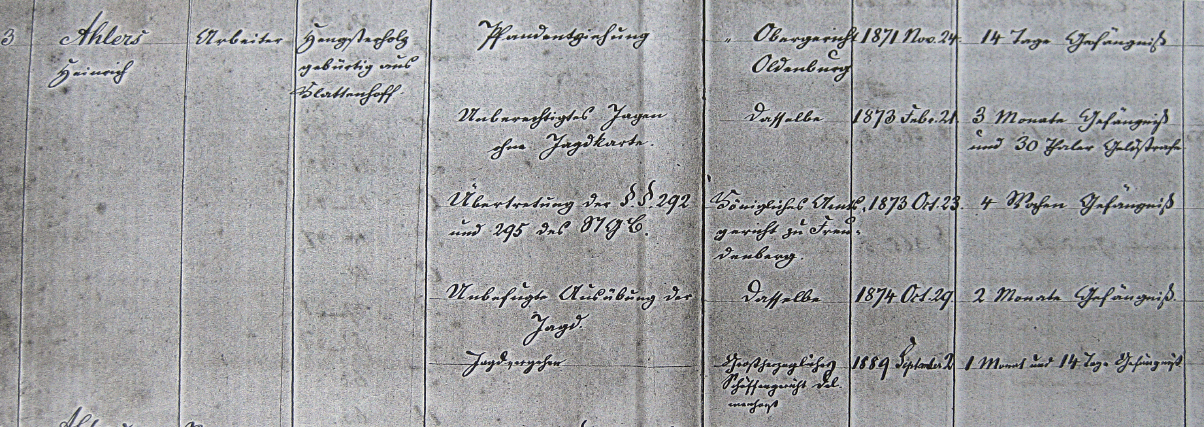 3 Ahlers Arbeiter Hengsterholz Pfandentziehung " Obergericht 1871 Nov. 24. 14 Tage Gefängniß
Heinrich gebürtig aus Oldenburg
Klattenhoff.
Unberechtigtes Jagen Dasselbe 1873 Febr. 21. 3 Monate Gefängniß
ohne Jagdkarte. und 30 Thaler Geldstrafe
Übertretung der §.§. 292 Königliches Amts- 1873 Oct. 23. 4 Wochen Gefängniß
und 295 des StGB. gericht zu Freu-
denberg.
Unbefugte Ausübung der Dasselbe 1874 Oct. 29. 2 Monate Gefängniß.
Jagd.
Jagdvergehen Großherzogliches 1889 September 2 1 Monat und 14 Tage Gefängniß
Schöffengericht Del-
menhorst